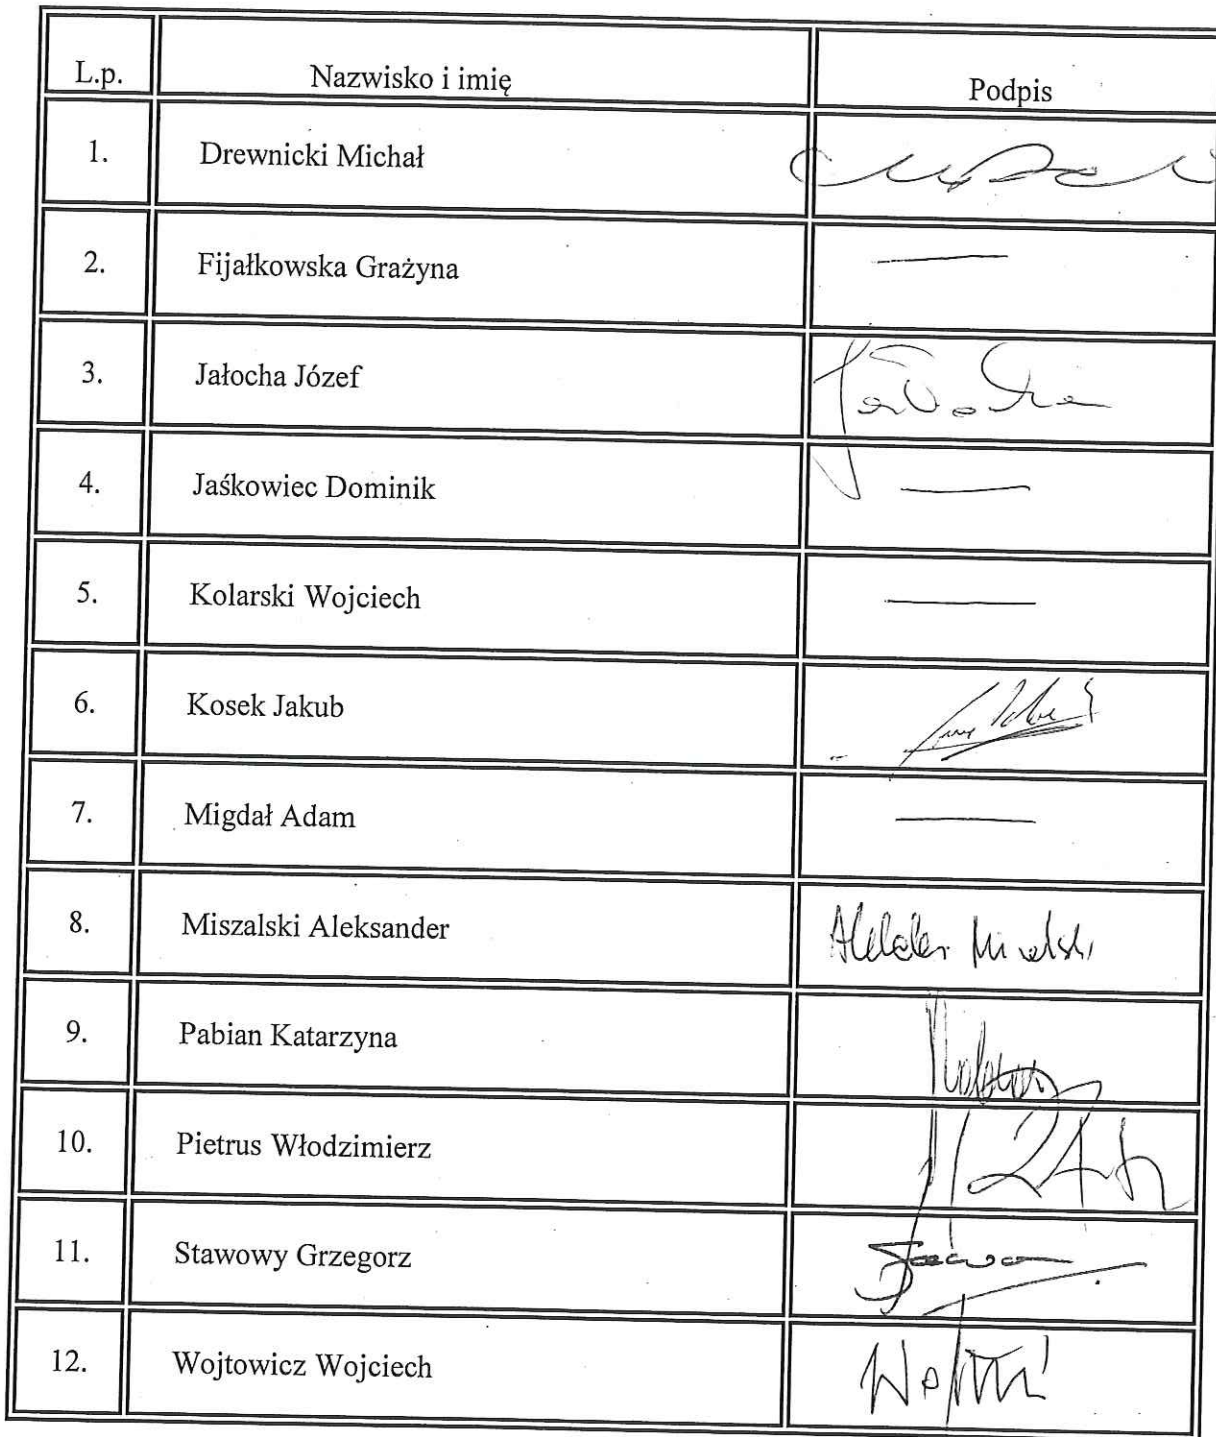 L.p. Nazwisko i imię Podpis
1. Drewnicki Michał
2. Fijałkowska Grażyna —
3. Jałocha Józef Jałocha
4. Jaśkowiec Dominik —
5. Kolarski Wojciech —
6. Kosek Jakub
7. Migdał Adam —
8. Miszalski Aleksander
9. Pabian Katarzyna
10. Pietrus Włodzimierz
11. Stawowy Grzegorz
12. Wojtowicz Wojciech